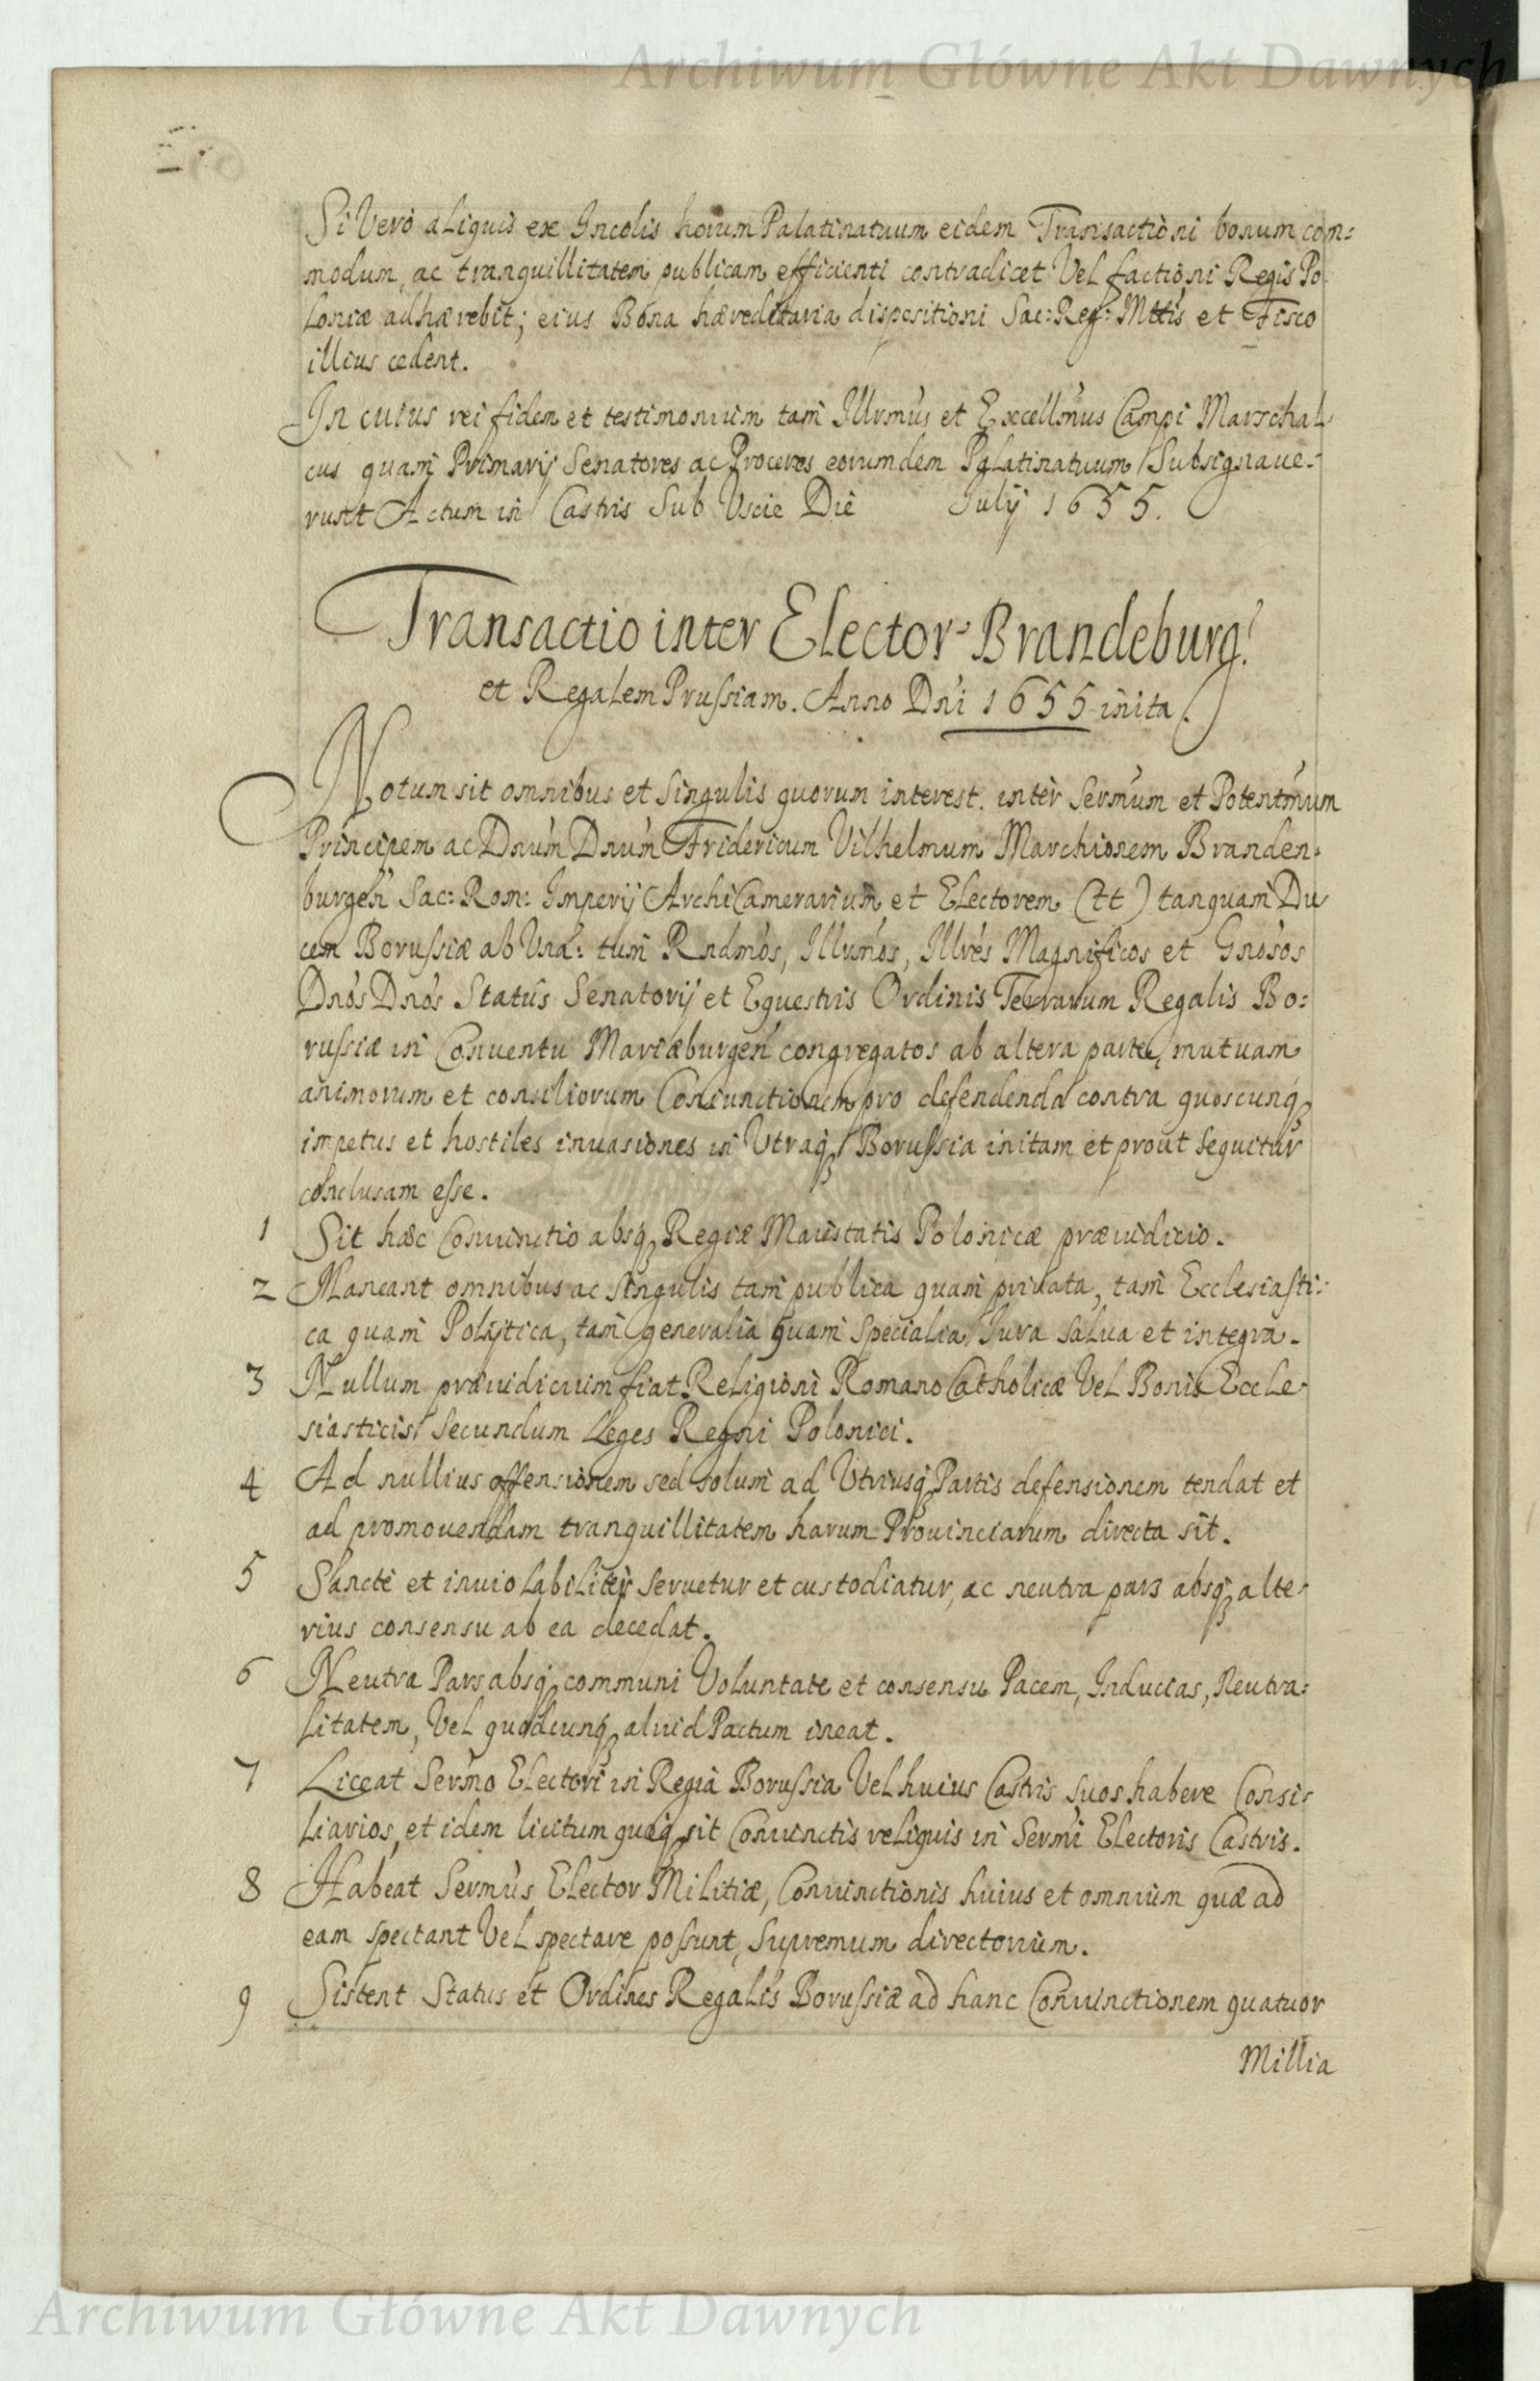 Archiwum Główne Akt Dawnych
Si Verò aliquis ex Incolis horum Palatinatuum eidem Transactioni bonum com:
modum, ac tranquillitatem publicam efficienti contradicet Vel factioni Regis Po
loniæ adhærebit; eius Bona hæreditaria dispositioni Sac: Reg: Mttis et Fisco
illius cedent.
In cuius rei fidem et testimonium tam Illrmus et Excellmus Campi Marschal
cus quam Primarij Senatores ac Proceres eorumdem Palatinatuum Subsignaue:
runt Actum in Castris Sub Uscie Die July 1655.
Transactio inter Elector Brandeburg:
et Regalem Prussiam. Anno Dni 1655 inita.
Notum sit omnibus et Singulis quorum interest. inter Sermum et Potentmum
Principem ac Dnum Dnum Fridericum Vilhelmum Marchionem Branden:
burgen Sac: Rom: Imperij ArchiCamerarium et Electorem (tt) tanquam Du
cem Borussiæ ab Una: tum Rndmos, Illrmos, Illres Magnificos et Gnosos
Dnos Dnos Status Senatorij et Equestris Ordinis Terrarum Regalis Bo:
russiæ in Conuentu Mariæburgen congregatos ab altera parte, mutuam
animorum et consiliorum Coniunctionem pro defendenda contra quoscunq
impetus et hostiles inuasiones in Utraq Borussia initam et prout sequitur
conclusam esse.
1 Sit hæc Coniunctio absq Regiæ Maiestatis Polonicæ præiudicio.
2 Maneant omnibus ac Singulis tam publica quam priuata, tam Ecclesiasti:
ca quam Polytica, tam generalia quam Specialia Iura Salua et integra.
3 Nullum præiudicium fiat Religioni Romano Catholicæ Vel Bonis Eccle:
siasticis Secundum Leges Regni Polonici.
4 Ad nullius offensionem sed solum ad Utriusq Partis defensionem tendat et
ad promouendam tranquillitatem harum Prouinciarum directa sit.
5 Sanctè et inuiolabiliter Seruetur et custodiatur, ac neutra pars absq alte:
rius consensu ab ea decedat.
6 Neutra Pars absq communi Voluntate et consensu Pacem, Inducias, Neutra:
litatem, Vel quodcunq aliud Pactum ineat.
7 Liceat Sermo Electori in Regia Borussia Vel huius Castris Suos habere Consi:
liarios, et idem licitum quoq sit Coniunctis reliquis in Sermi Electoris Castris.
8 Habeat Sermus Elector Militiæ, Coniunctionis huius et omnium quæ ad
eam spectant Vel spectare possunt, Supremum directorium.
9 Sistent Status et Ordines Regalis Borussiæ ad hanc Coniunctionem quatuor
Millia
Archiwum Główne Akt Dawnych